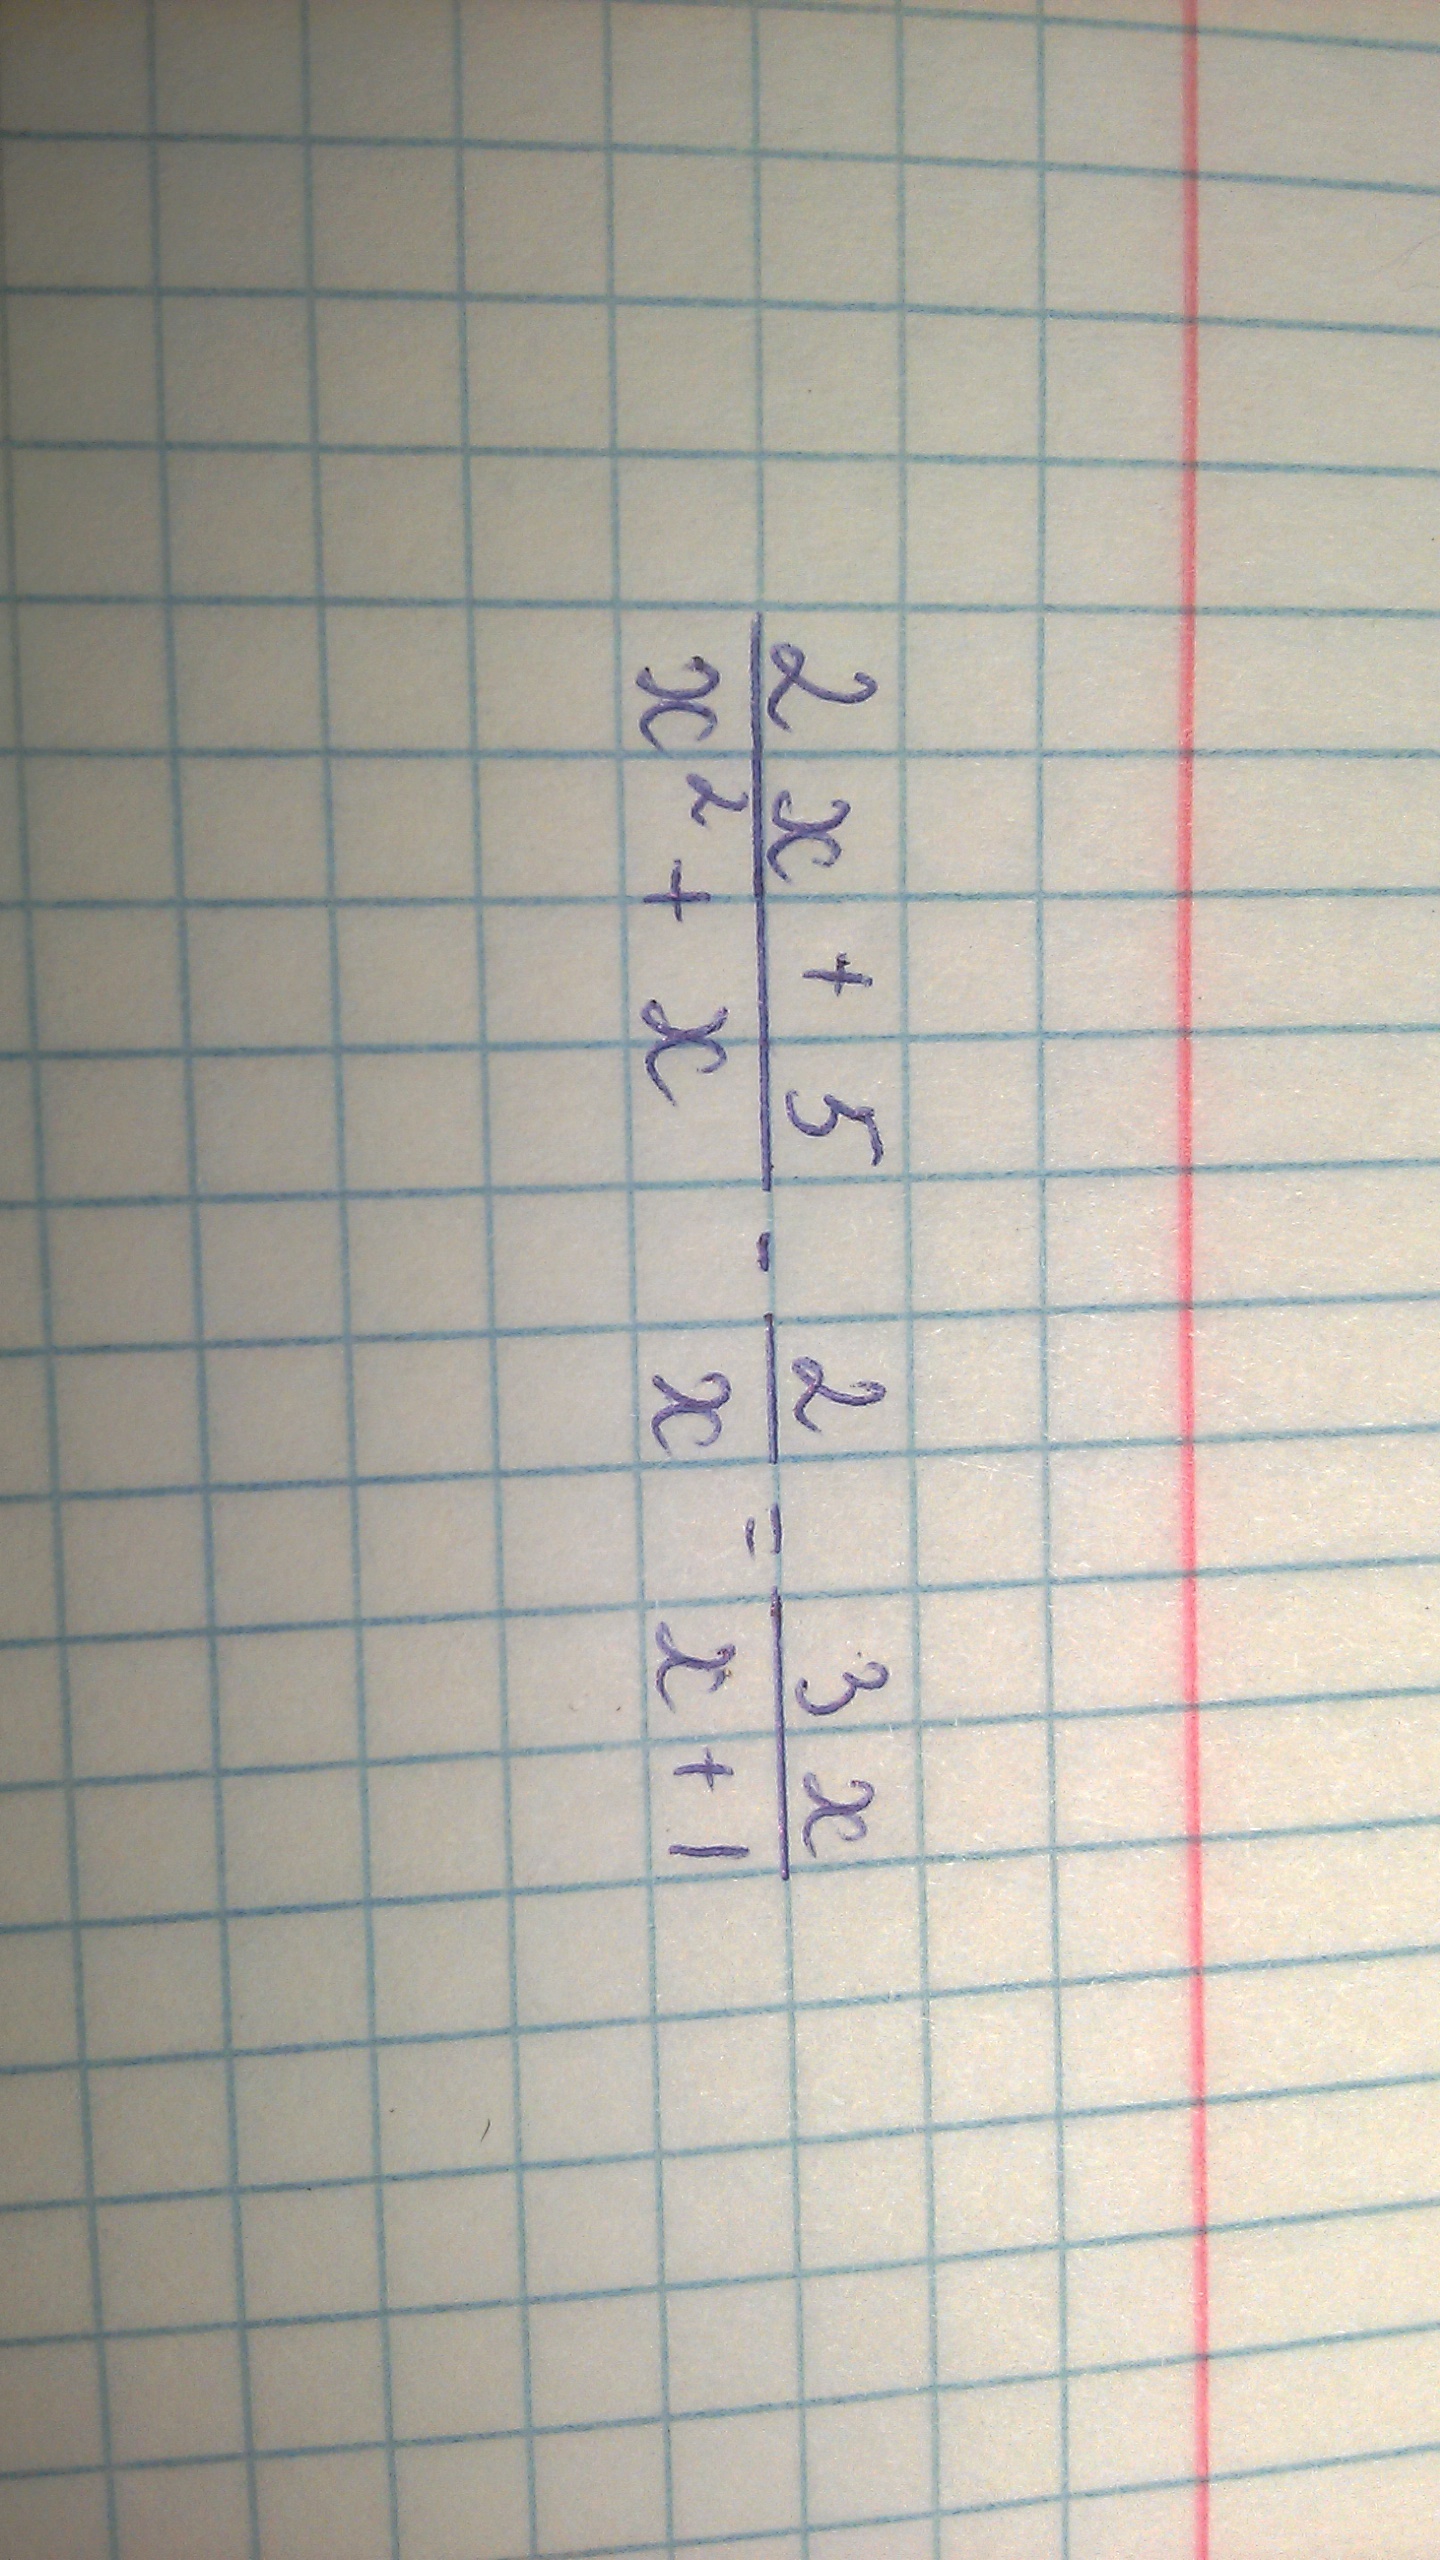 (2x + 5)/(x² + x) - 2/x = 3x/(x + 1)